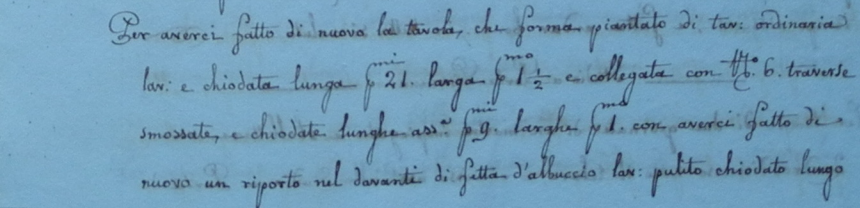 Per averci fatto di nuovo la tavola, che forma piantato di tav: ordinaria
lav: e chiodata lunga p.mi 21. larga p.mo 1 1/2 e collegata con N.o 6. traverse
smossate, e chiodate lunghe ass.e p.mi 9. larghe p.mo 1. con averci fatto di
nuovo un riporto nel davanti di fetta d'albuccio lav: pulito chiodato lungo